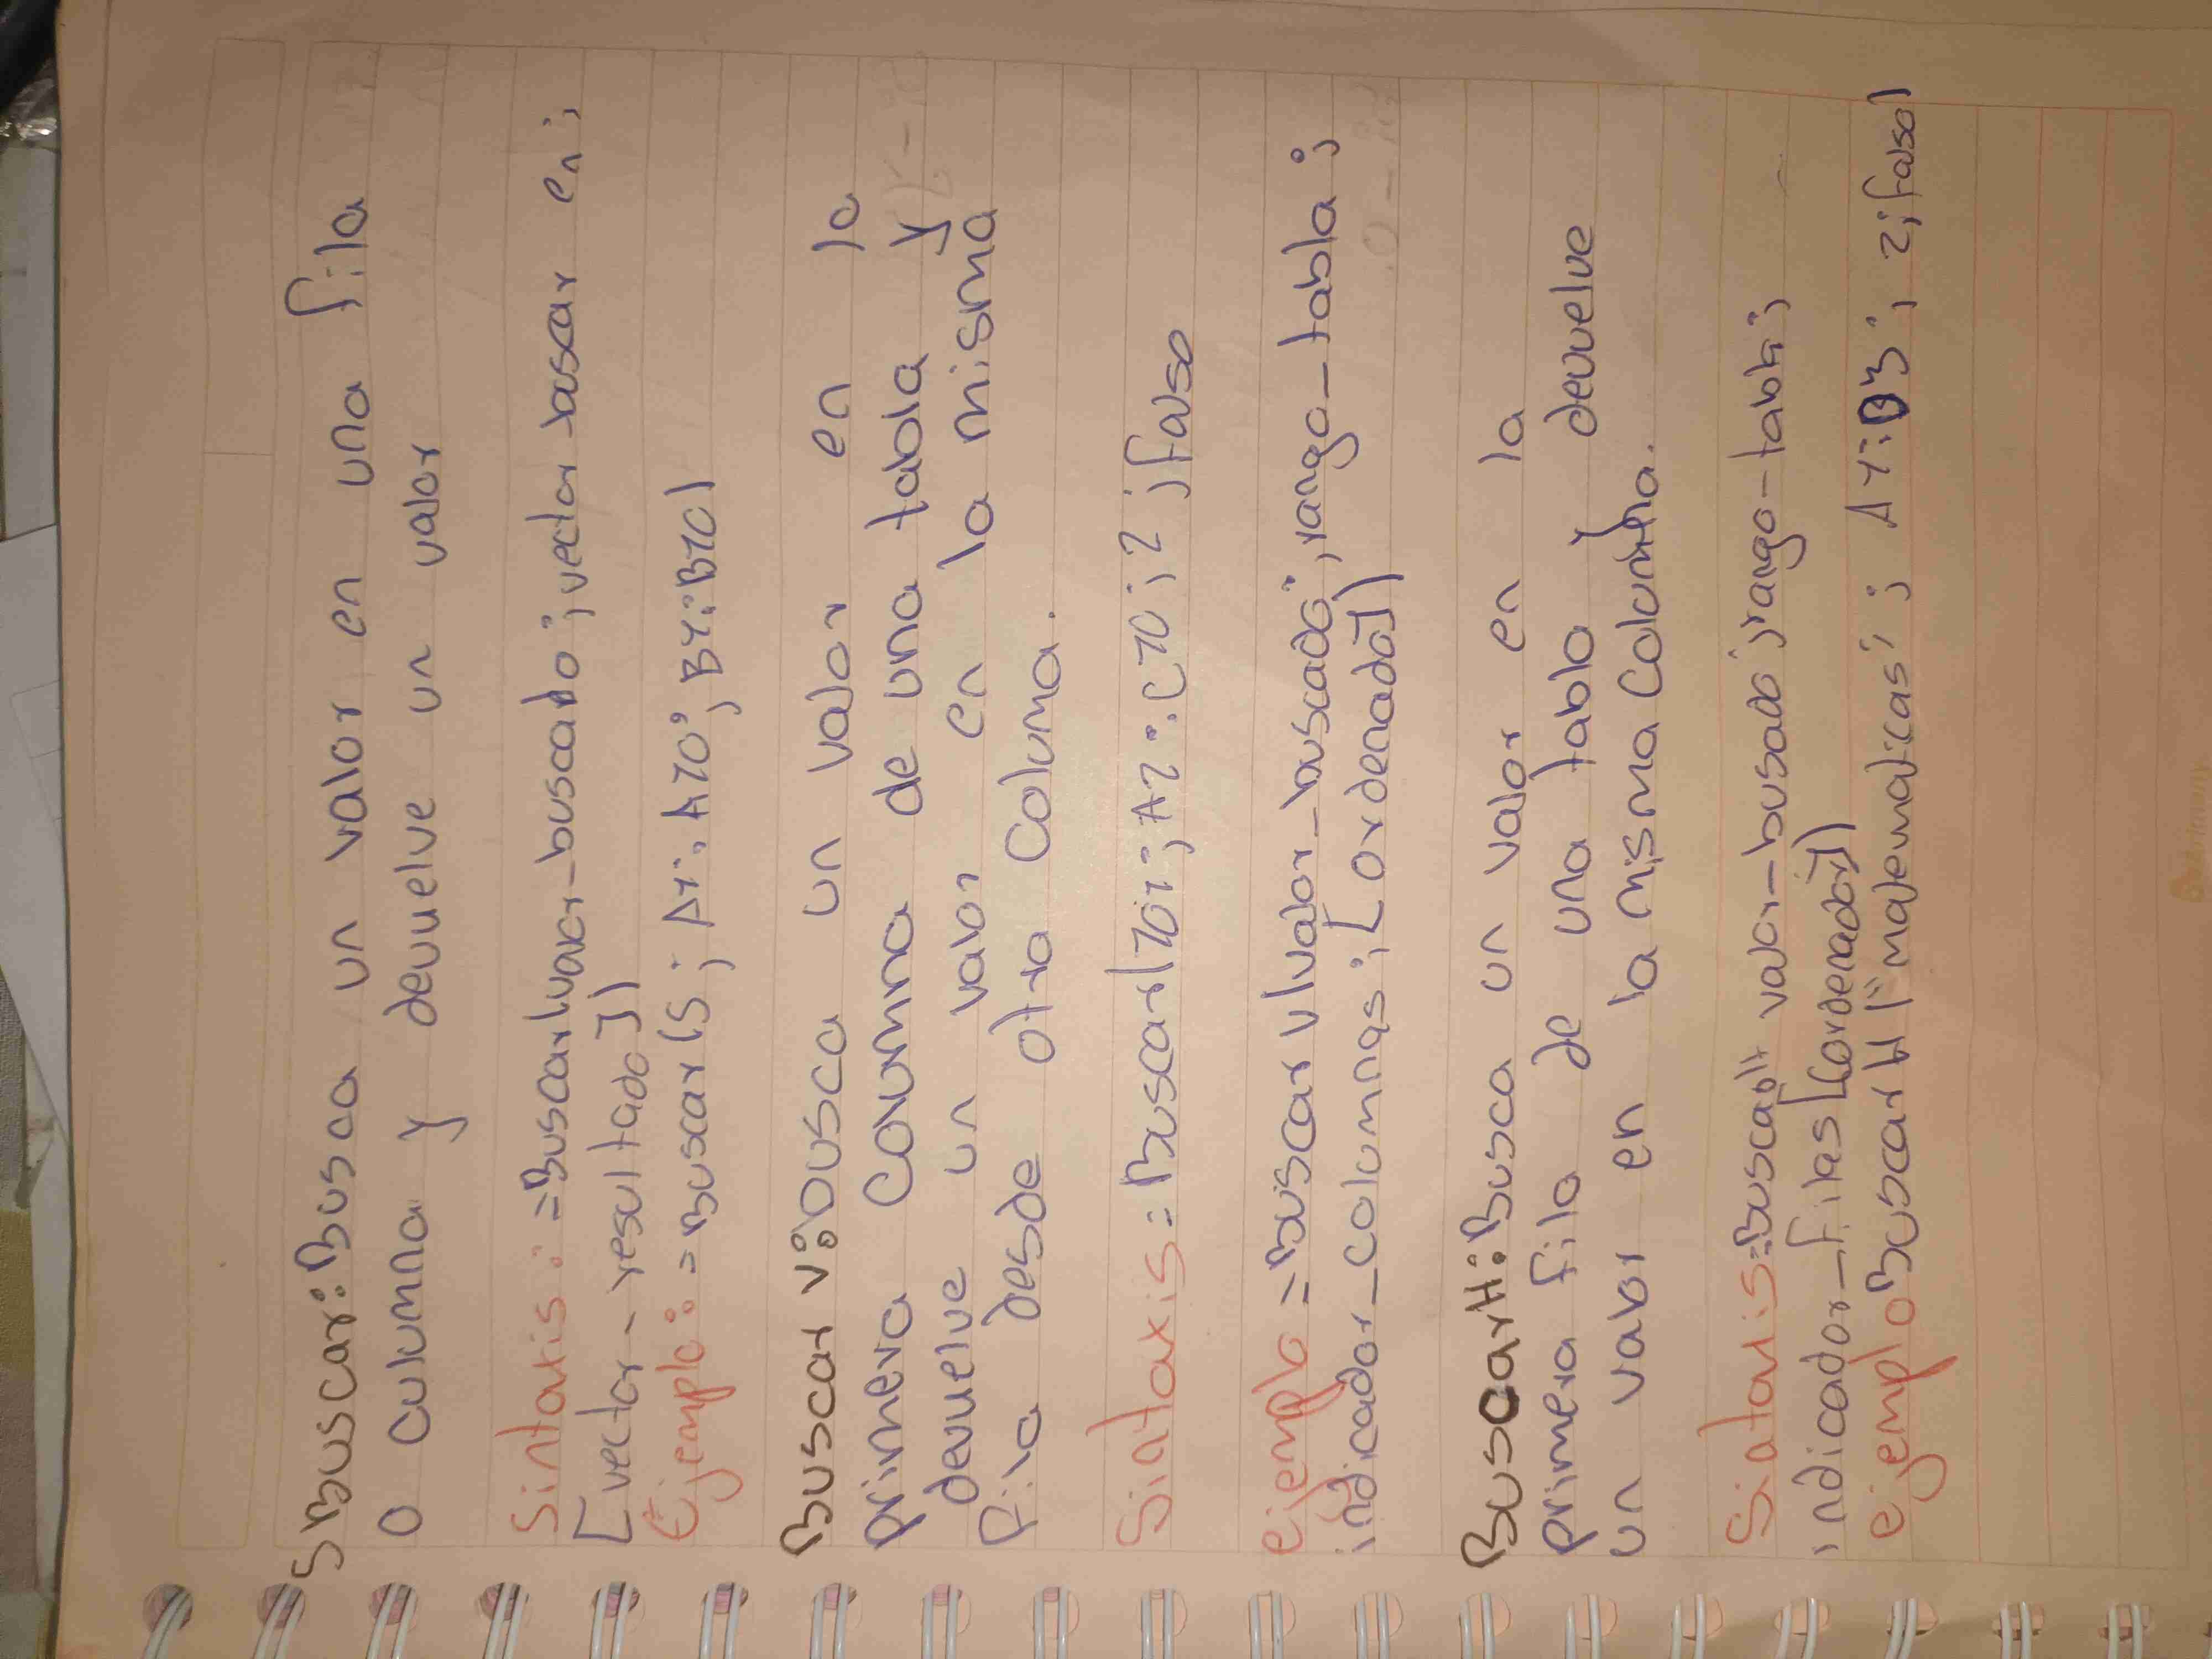 SBuscar: Busca un valor en una fila
o columna y devuelve un valor
Sintaxis: =Buscar(valor-buscado; vector buscar en;
[vector-resultado])
Ejemplo: =Buscar(5; A1:A10; B1:B10)
Buscar V: Busca un valor en la
primera columna de una tabla y
devuelve un valor en la misma
fila desde otra Columa.
Sintaxis= Buscar(101; A2:C10; 2; falso
ejemplo =Buscar V(valor_buscado; rango_tabla;
indicador_columnas; [ordenado])
BuscarH: Busca un valor en la
primera fila de una tabla y devuelve
un valor en la misma Columna.
Sintaxis=BuscaH valor-busado; rango-tabla;
indicador_filas [(ordenado])
ejemplo BuscarH("matematicas"; A1:D3; 2; falso)